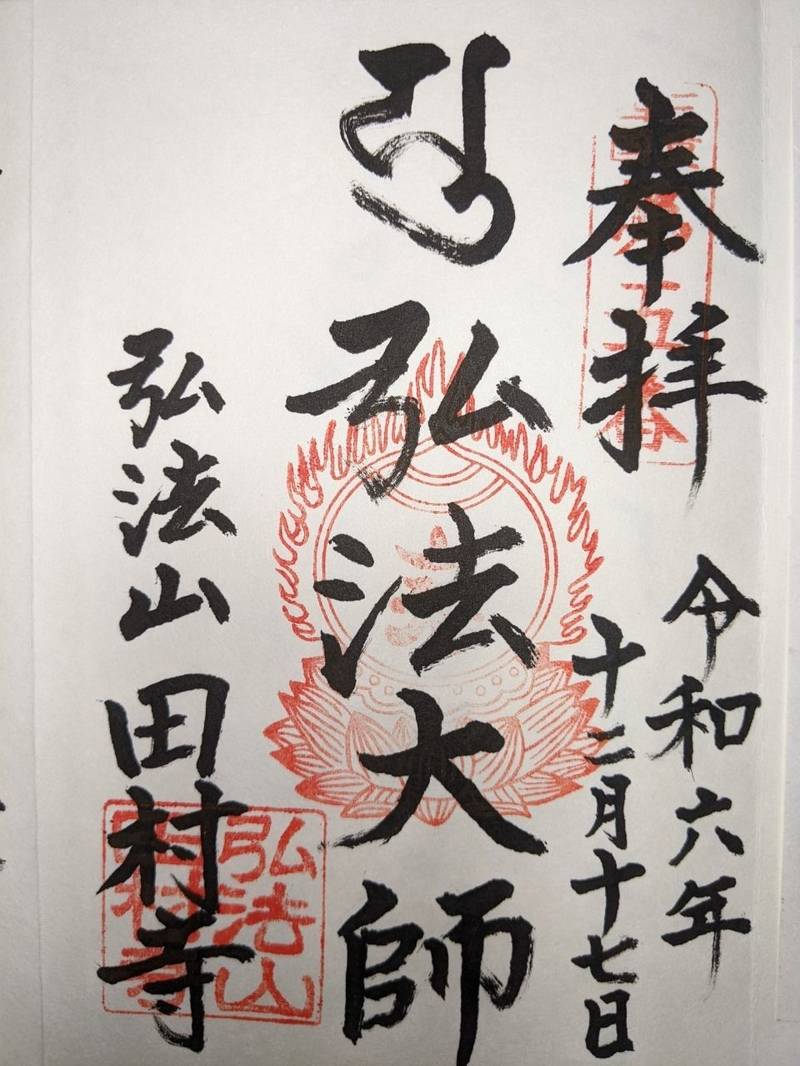 奉拝
令和六年
十二月十七日
弘法大師
弘法山 田村寺
弘法山
田村寺